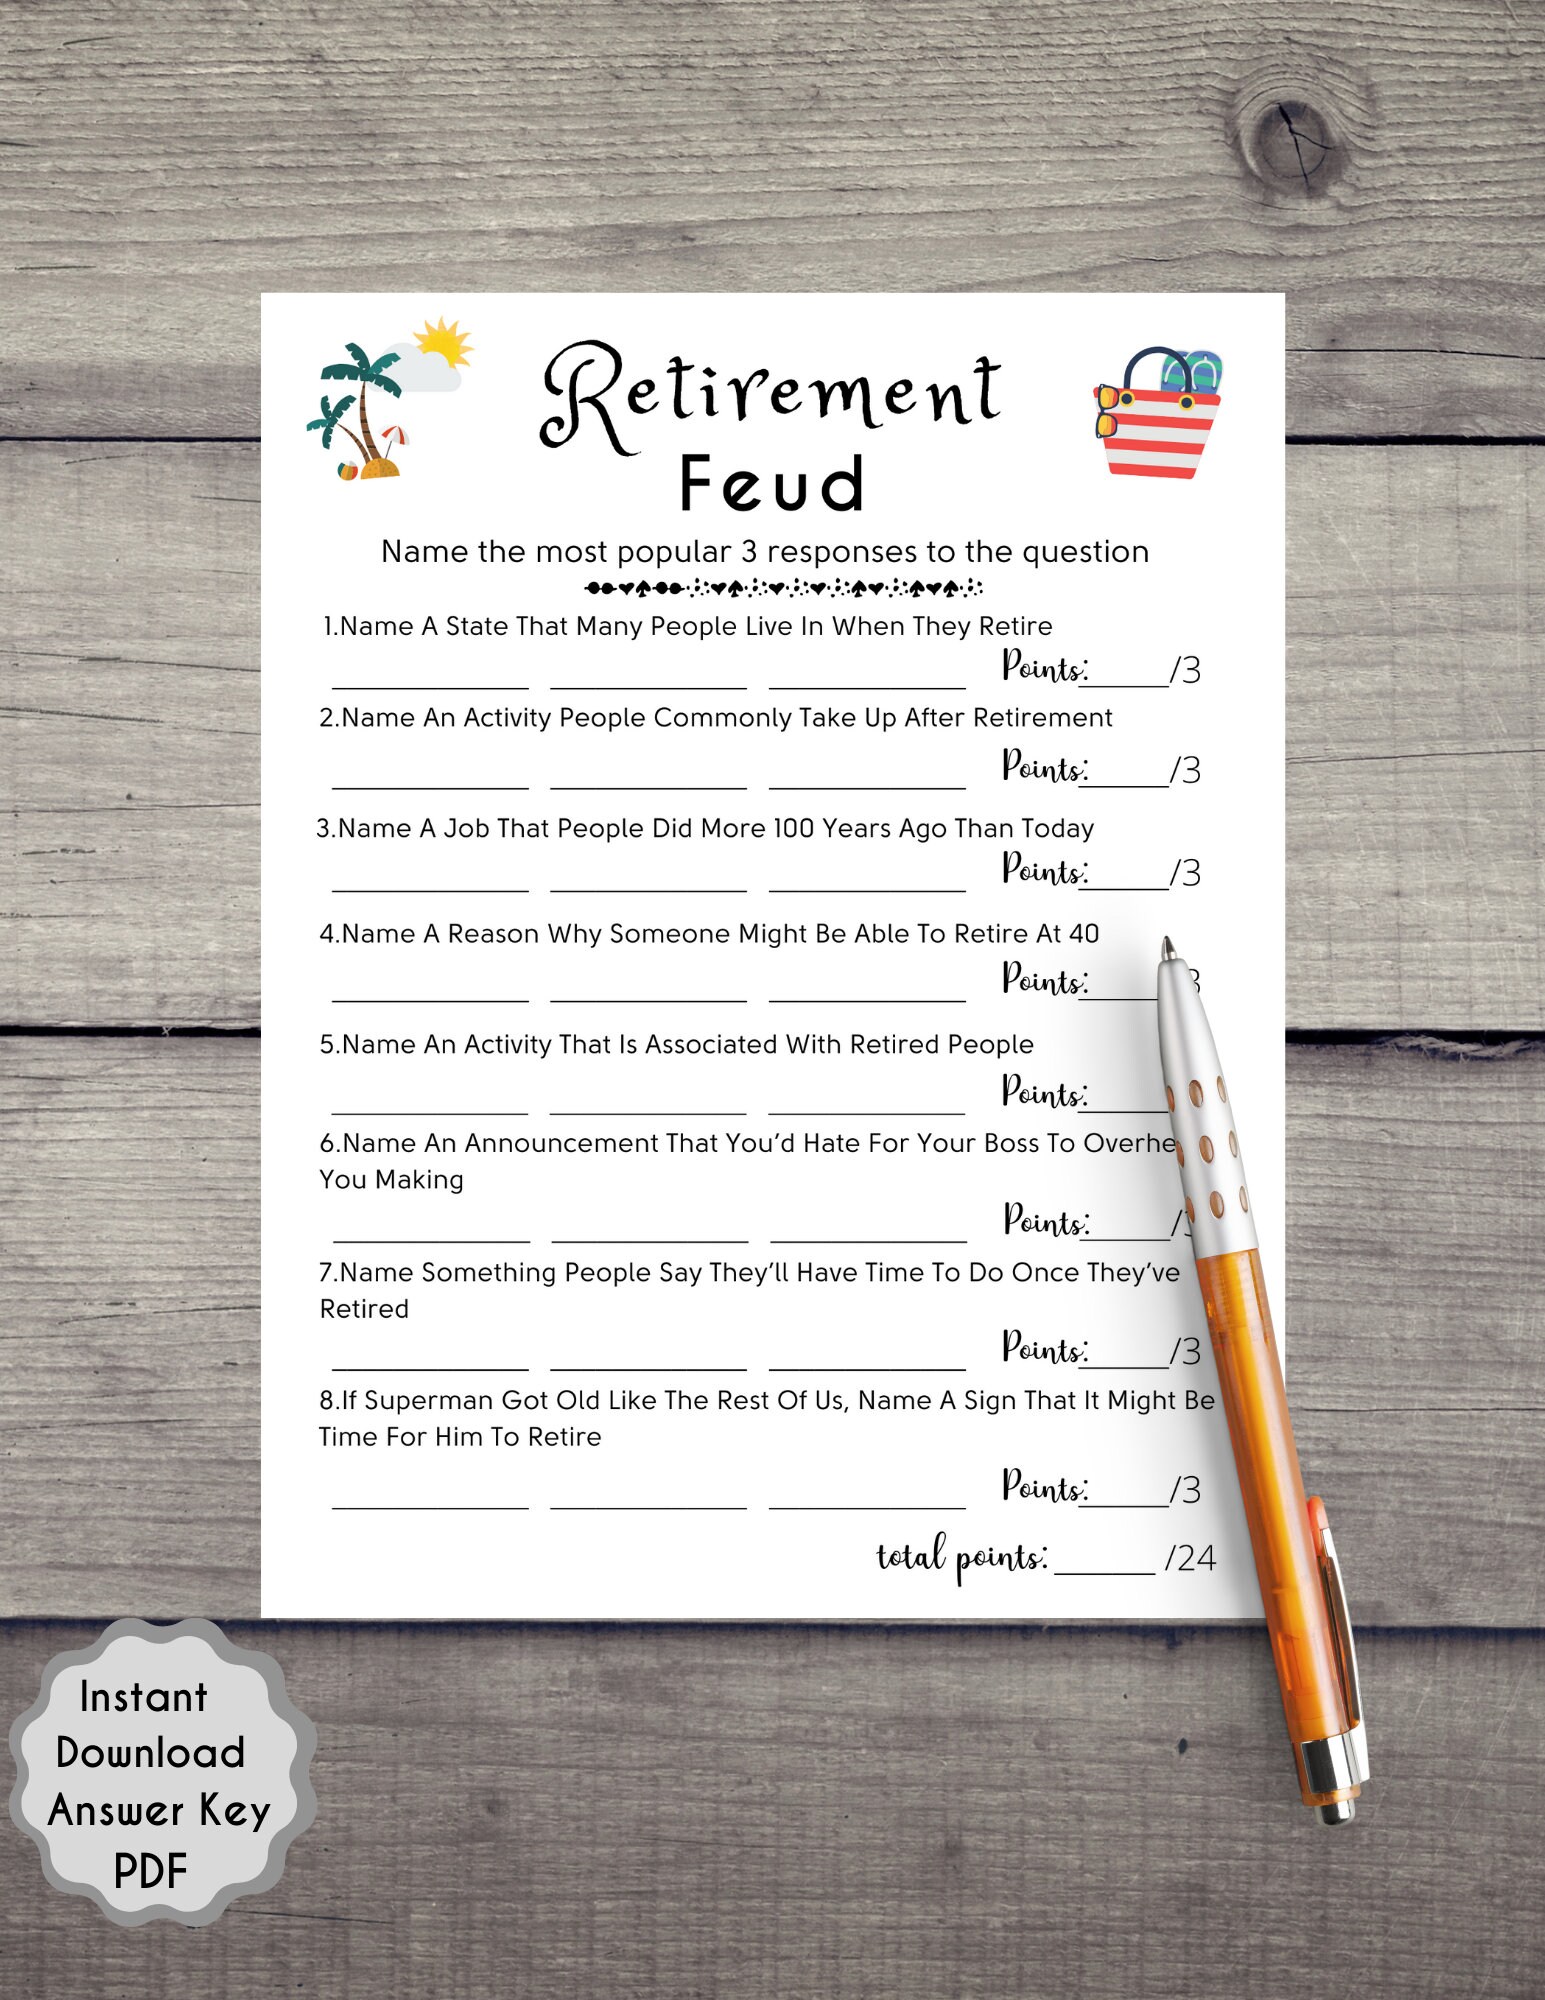 Retirement
Feud
Name the most popular 3 responses to the question
1.Name A State That Many People Live In When They Retire
Points:______/3
2.Name An Activity People Commonly Take Up After Retirement
Points:______/3
3.Name A Job That People Did More 100 Years Ago Than Today
Points:______/3
4.Name A Reason Why Someone Might Be Able To Retire At 40
Points:______
5.Name An Activity That Is Associated With Retired People
Points:______
6.Name An Announcement That You'd Hate For Your Boss To
You Making
Points:______/
7.Name Something People Say They'll Have Time To Do Once They've
Retired
Points:______/3
8.If Superman Got Old Like The Rest Of Us, Name A Sign That It Might Be
Time For Him To Retire
Points:______/3
total points:______/24
Instant
Download
Answer Key
PDF